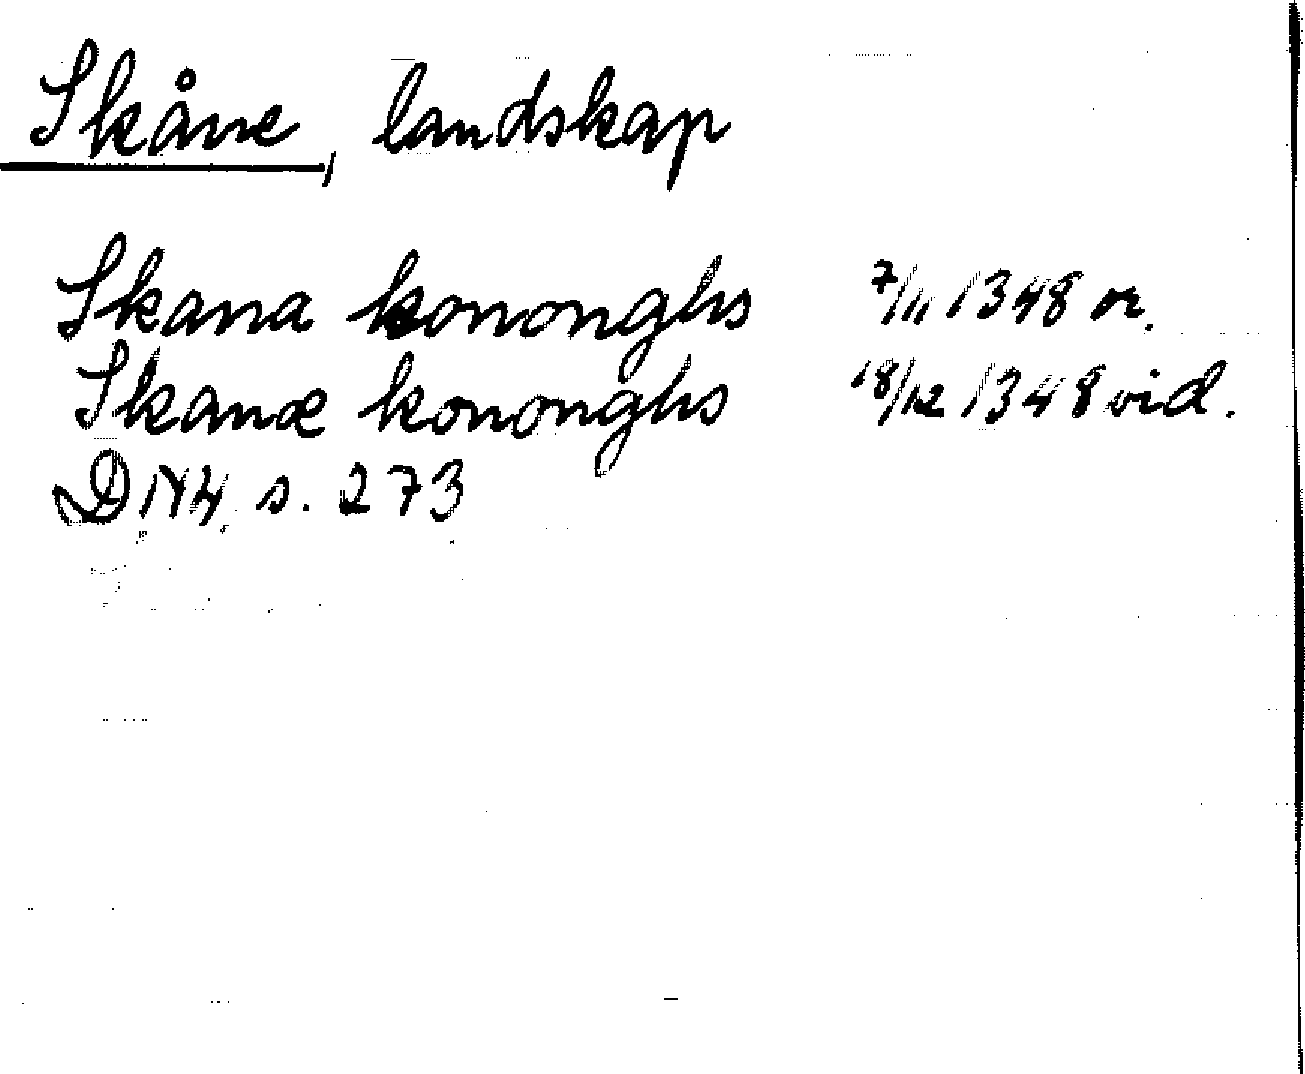 Skåne, landskap
Skana kononghs 7/11 1348 or.
Skanæ kononghs 18/12 1348 vid.
DN4 s. 273